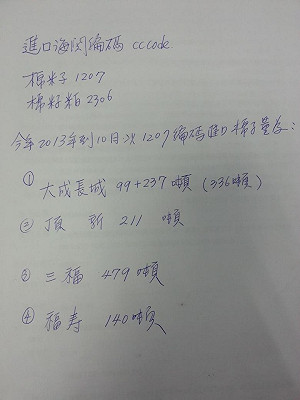 進口海関編碼 cccode
棉籽子 1207
棉籽粕 2306
今年2013年到10月以1207編碼進口棉子量為:
① 大成長城 99+237噸 (336噸)
② 頂新 211 噸
③ 三福 479噸
④ 福寿 140噸